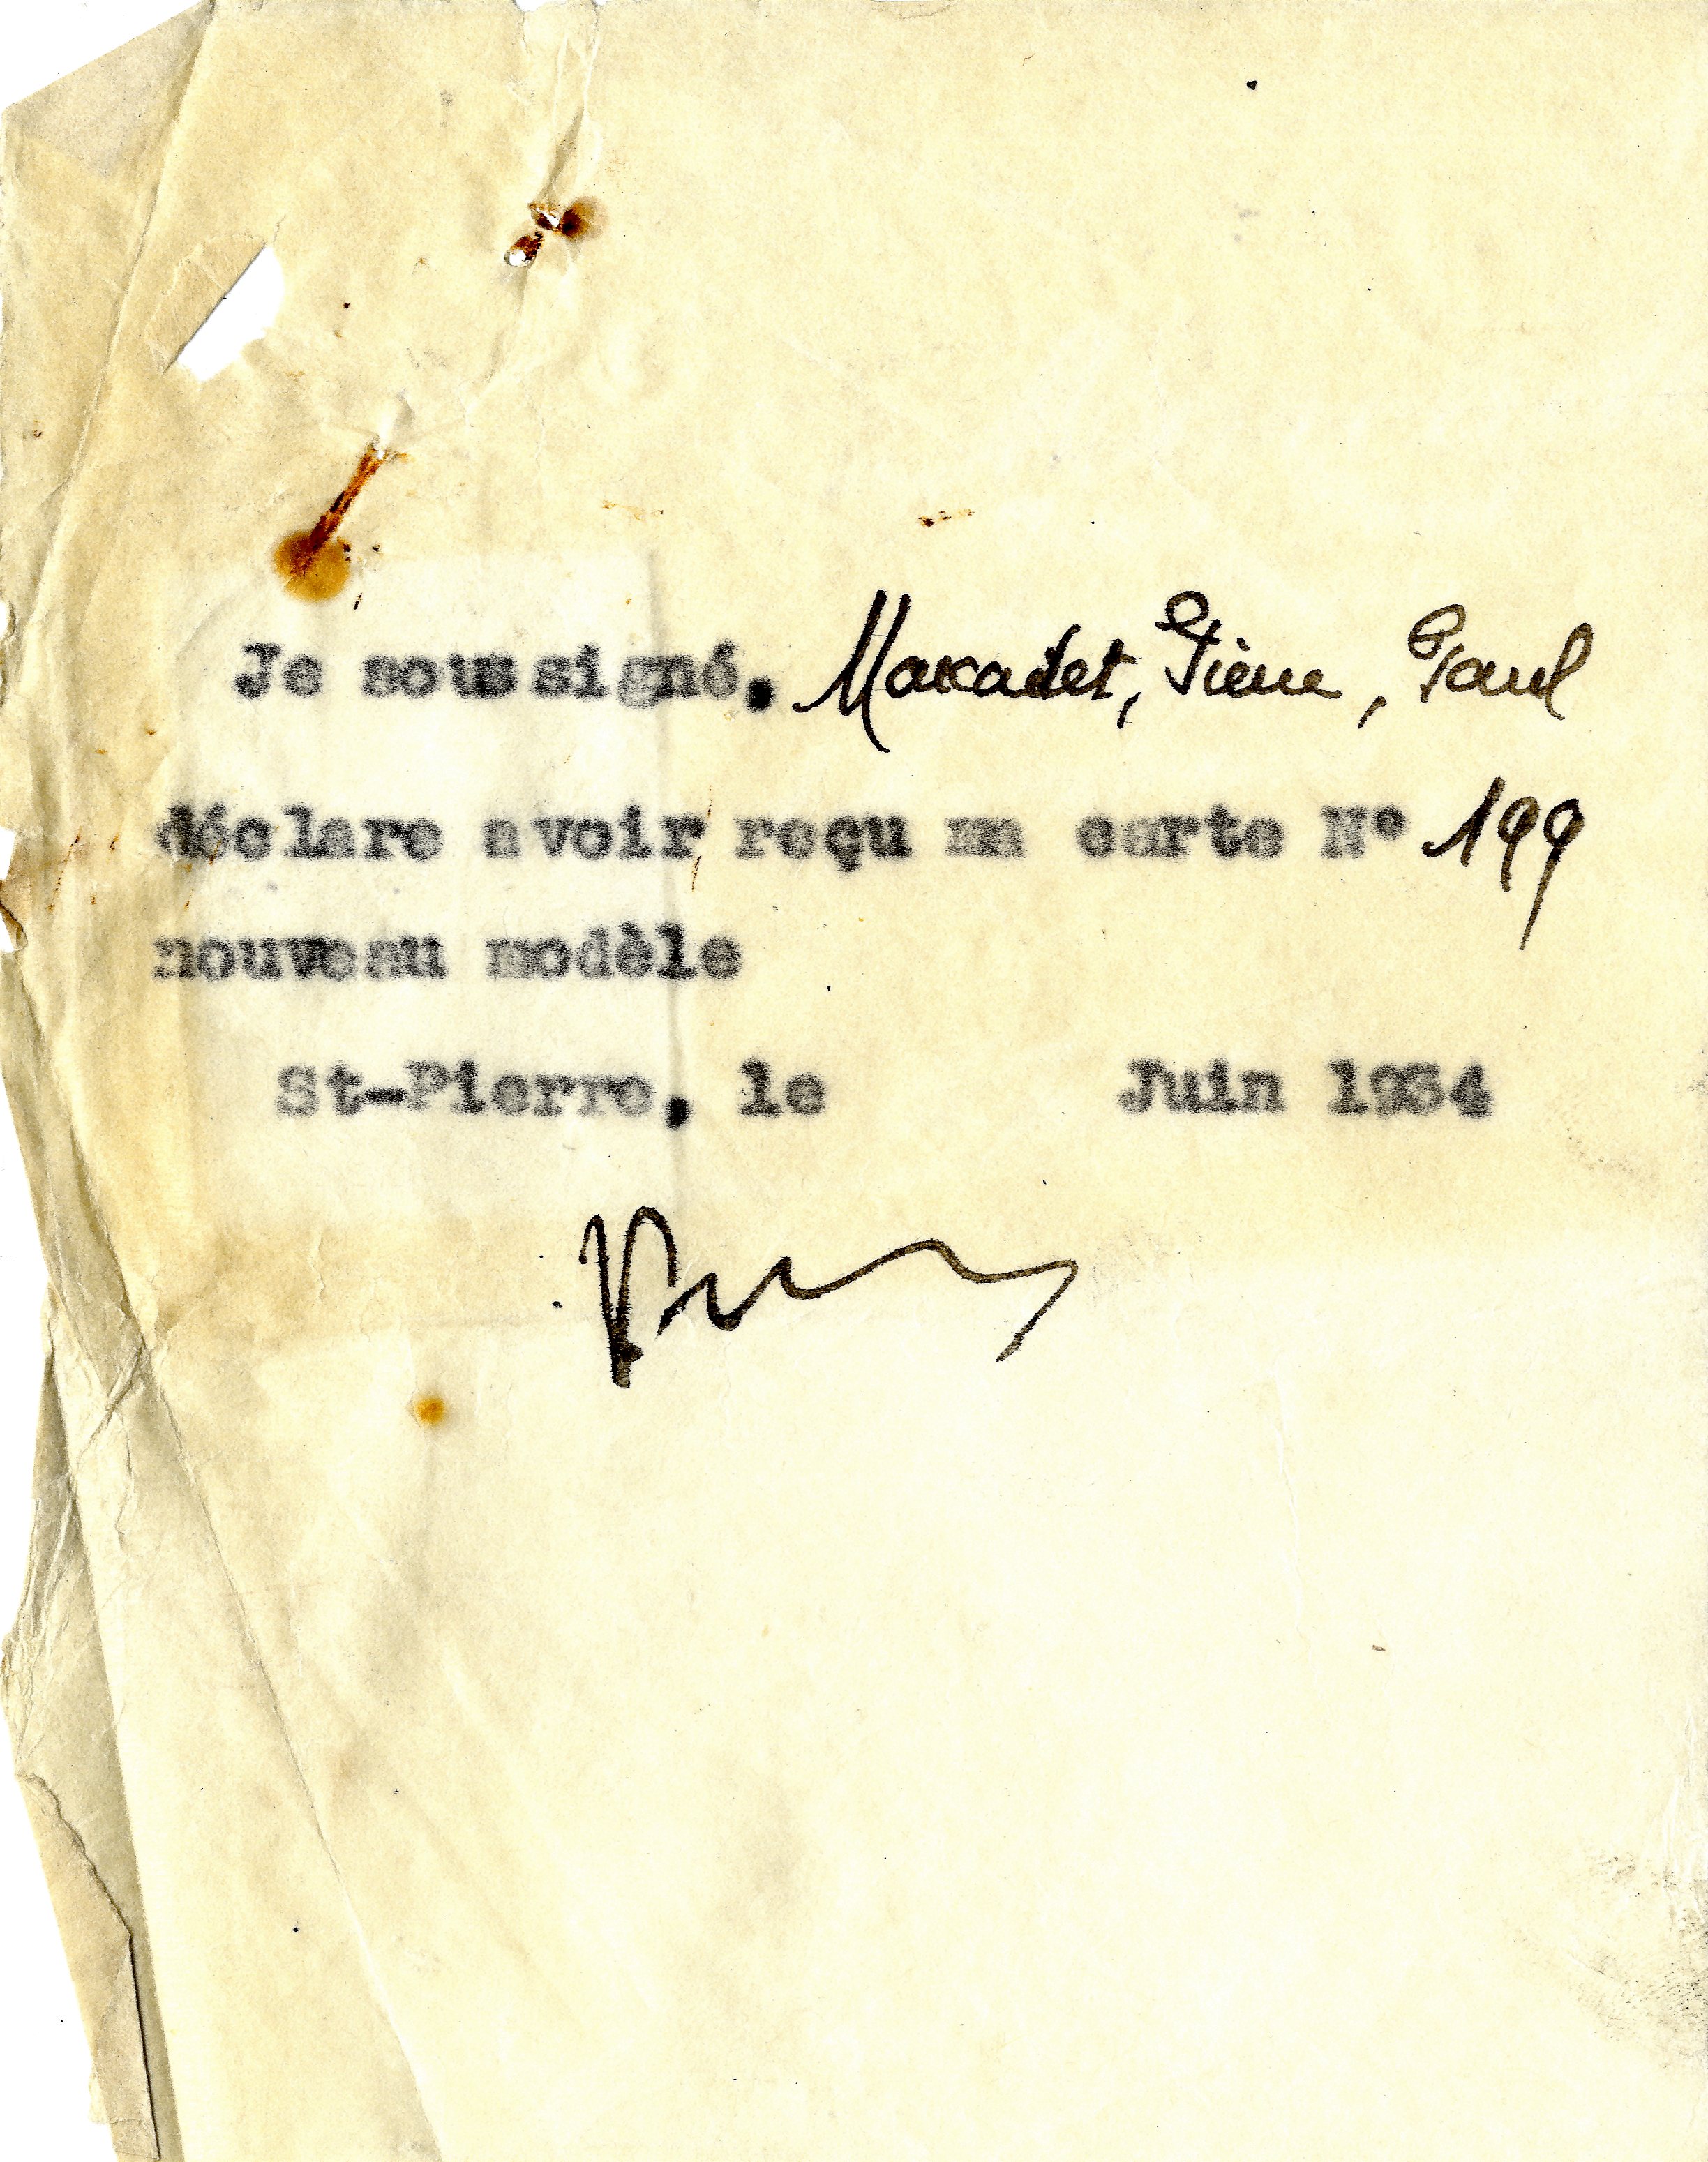 Je soussigné, Marcadet, Pierre, Paul
déclare avoir reçu ma carte N° 199
nouveau modèle
St-Pierre, le Juin 1934